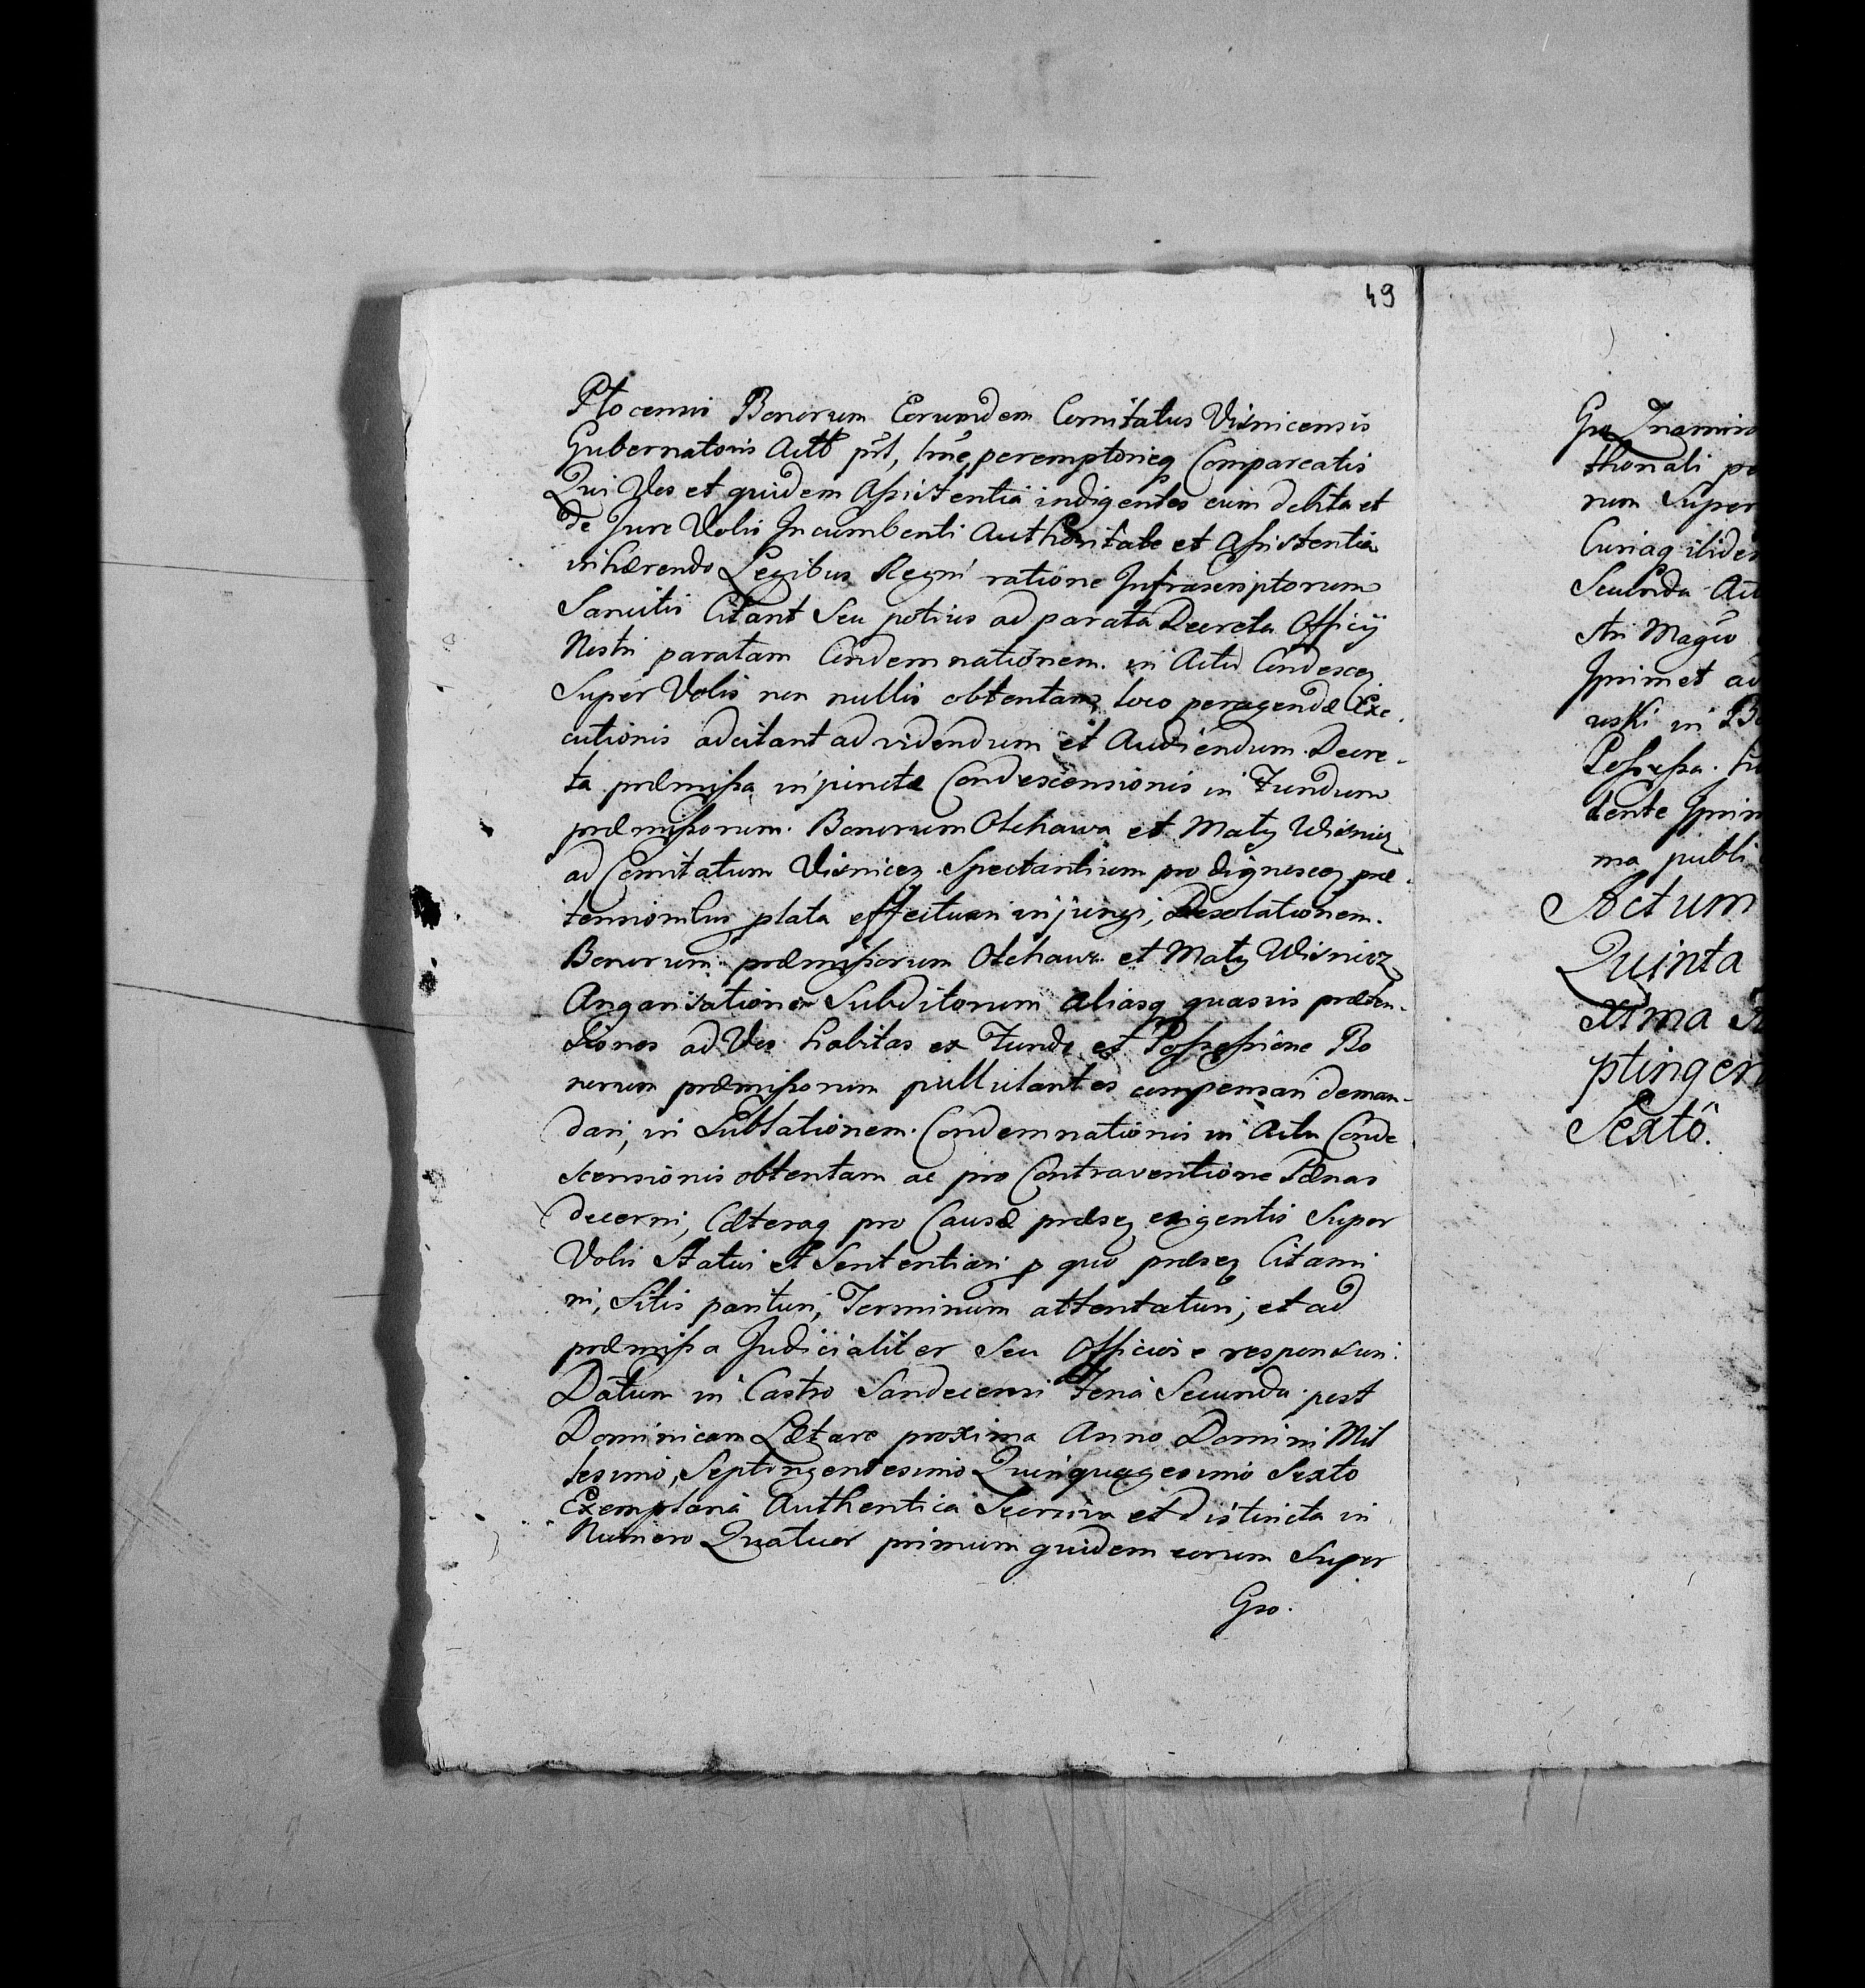 49
Plocensis Bonorum Eorumdem Comitatus Visnicensis
Gubernatoris Actõ pñt, peremptorieq Compareatis
Qui Vos et quidem Assistentiâ indigentes cum debita et
de Jure Vobis Incumbenti Authoritate et Assistentia
inhærendo Legibus Regni ratione Infrascriptorum
Sancitis Citant Seu potius ad parata Decreta Officij
Nostri paratam Condemnationem in Actu Condescen
Super Vobis non nullis obtentam, loco peragendæ Exe
cutionis adcitant ad videndum et Audiendum Decre-
ta præmissa injunctæ Condescensionis in Fundum
præmissorum Bonorum Olchawa et Mały Wisnicz
ad Comitatum Visnicen Spectantium pro dignoscen præ-
tensionibus plata effectuari injungi, Desolationem
Bonorum præmissorum Olchawa et Mały Wisnicz
Angarisationem Subditorum aliasq quasvis præten-
tiones ad Vos habitas ex Fundo et Possessione Bo
norum præmissorum pullulantes compensari deman-
dari, in Sublationem Condemnationis in Actu Conde
scensionis obtentam ac pro Contraventione Pænas
decerni, Cæteraq pro Causæ præsen exigentis Super
Vobis Statui et Sententiari p quo præsen Citami
ni, Sitis parituri, Terminum attentaturi, et ad
præmissa Judicialiter Seu Officiose responsuri.
Datum in Castro Sandecensi Feria Secunda post
Dominicam Lætare proxima Anno Domini Mil
lesimo, Septingentesimo Quinquagesimo Sexto
Exemplaria Authentica et distincta in
Numero Quatuor primum quidem eorum Super
Gro.
Gro Znamiro
thonali pe
rum Super
Curiaq itiden
Secunda Act
stri Magõ
Ipsimet ad
uski in Bo
Possessa
dente Ipsim
ma publi
Actum
Quinta
xima
ptingen
Sextô.